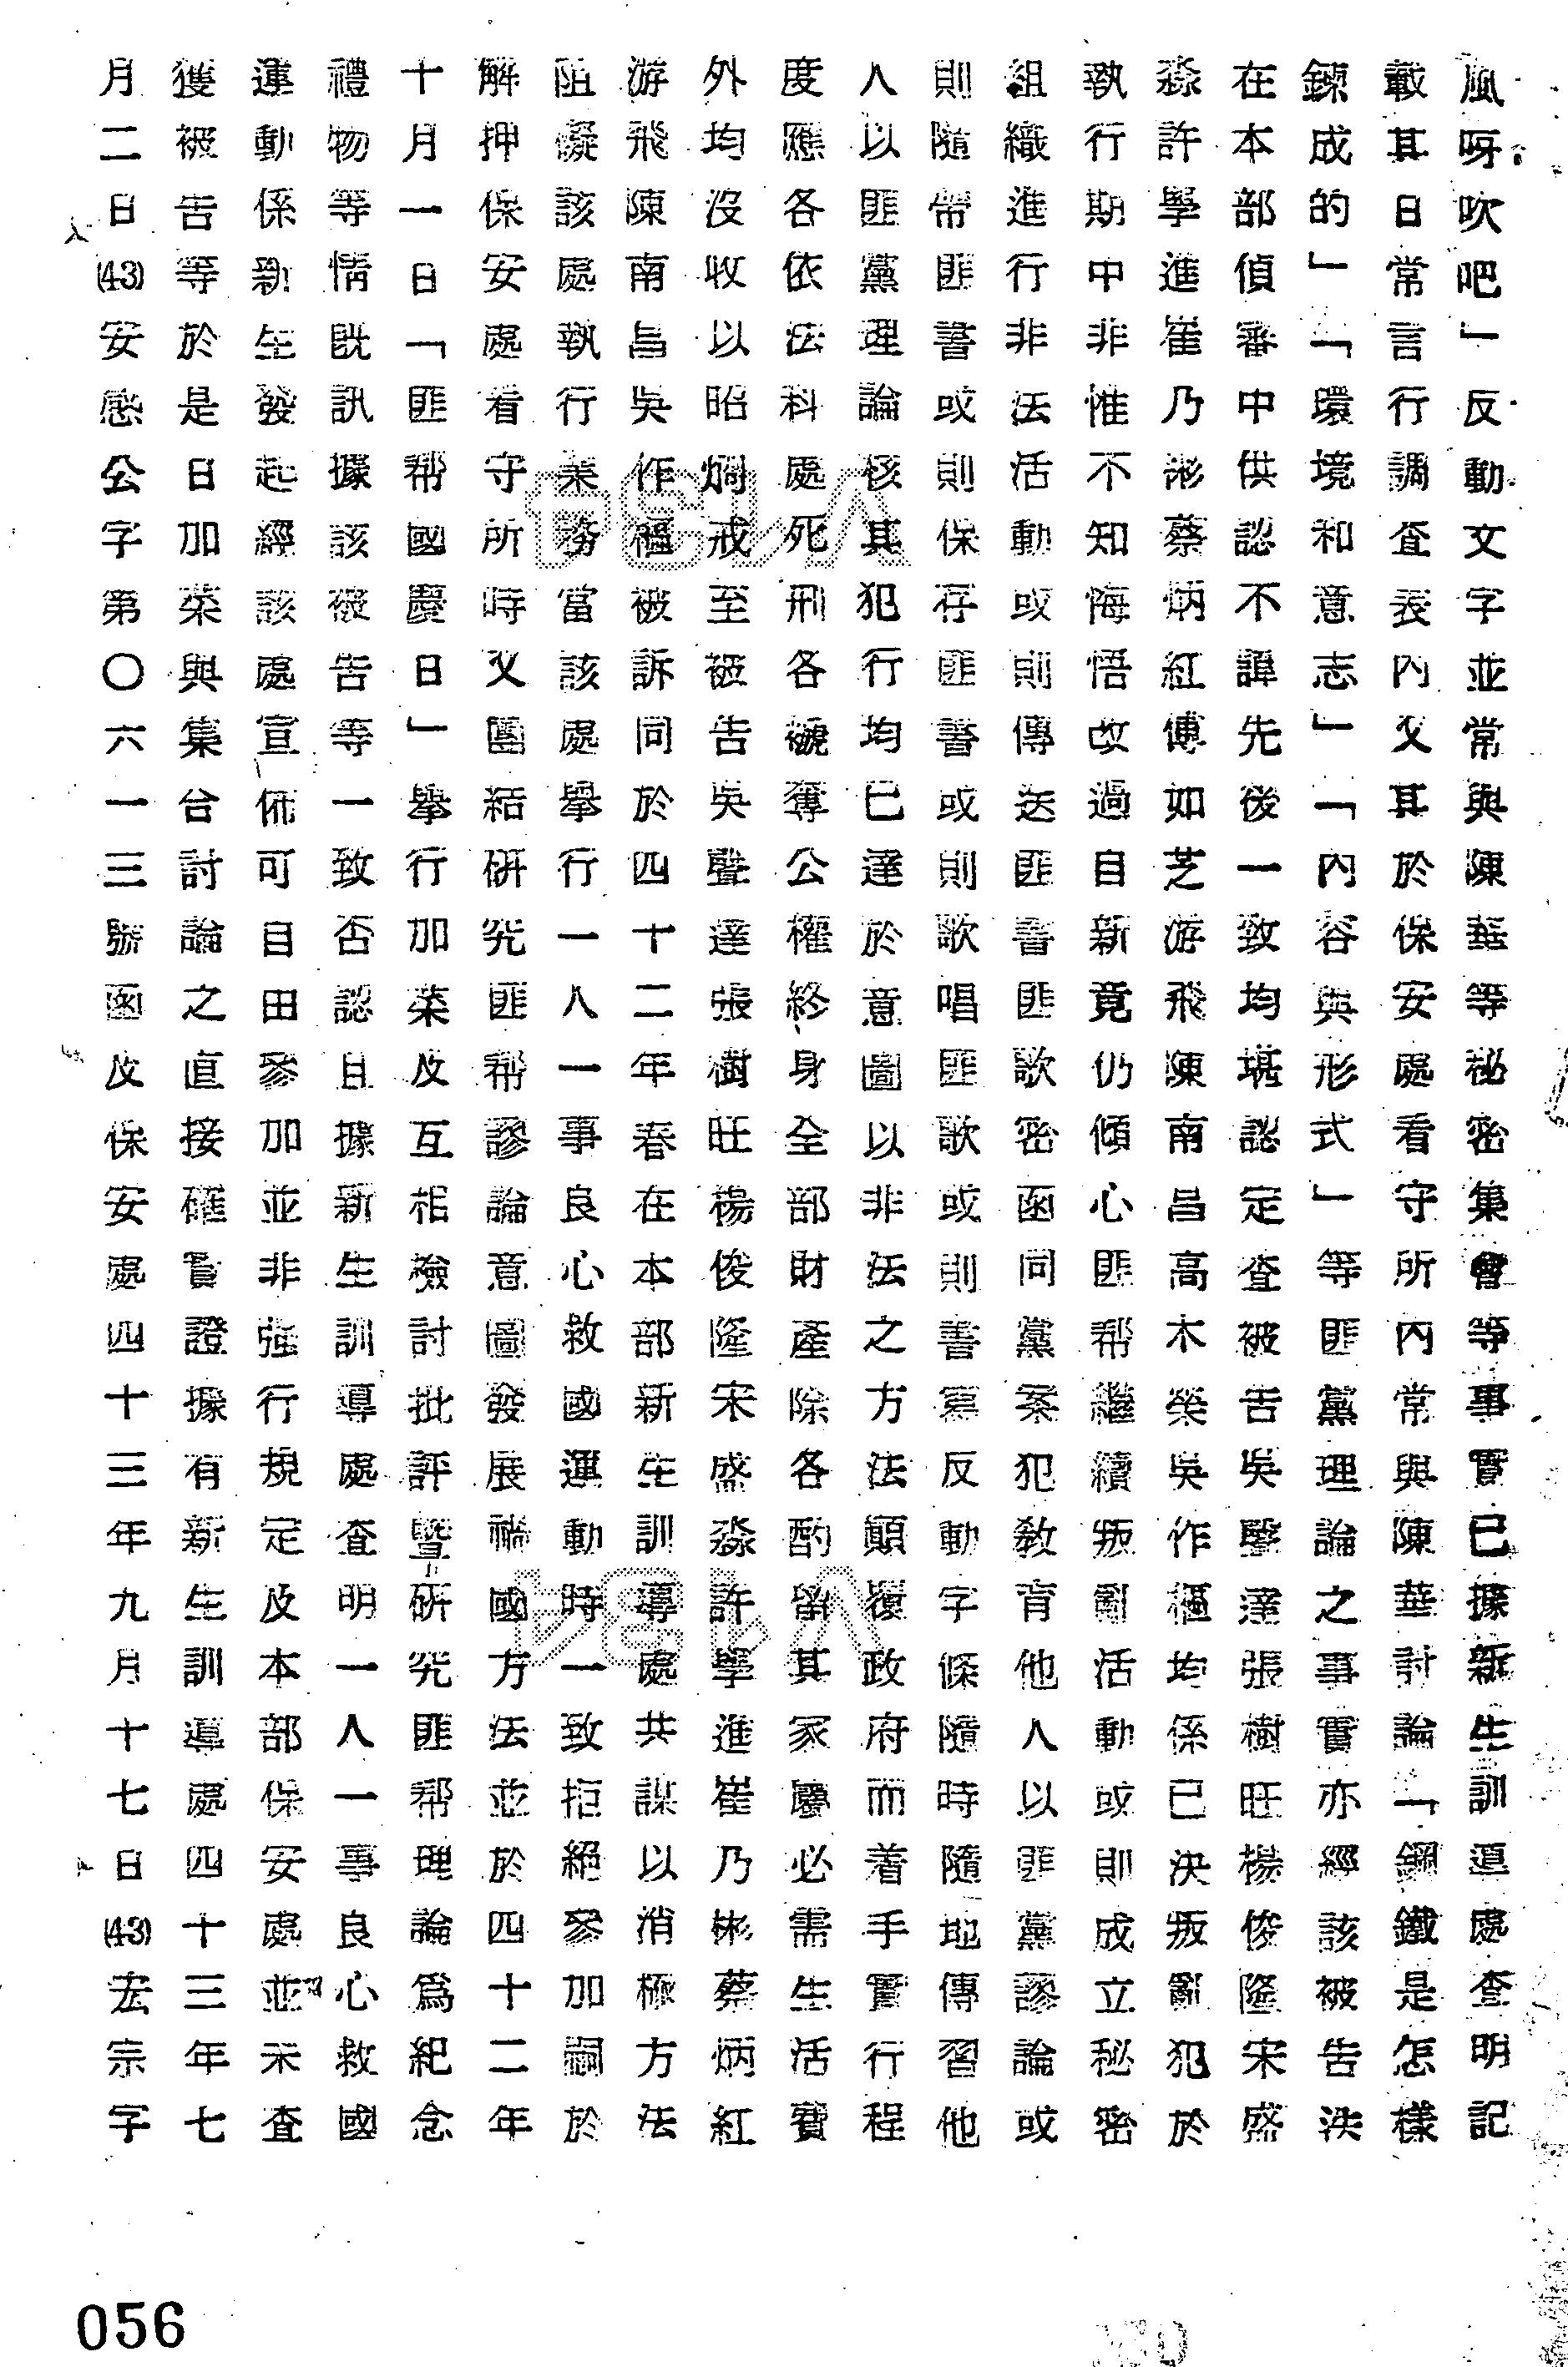 風呀吹吧」反動文字並常與陳華等祕密集會等事實已據新生訓導處查明記
載其日常言行調查表內又其於保安處看守所內常與陳華討論「鋼鐵是怎樣
鍊成的」「環境和意志」「內容與形式」等匪黨理論之事實亦經該被告決
在本部偵審中供認不諱先後一致均堪認定查被告吳聲達張樹旺楊俊隆宋盛
淼許學進崔乃彬蔡炳紅傅如芝游飛陳南昌高木榮吳作樞均係已決叛亂犯於
執行期中非惟不知悔悟改過自新竟仍傾心匪幫繼續叛亂活動或則成立秘密
組織進行非法活動或則傳送匪書匪歌密函同黨案犯教育他人以匪黨謬論或
則隨帶匪書或則保存匪書或則歌唱匪歌或則書寫反動字條隨時隨地傳習他
人以匪黨理論核其犯行均已達於意圖以非法之方法顛覆政府而着手實行程
度應各依法科處死刑各褫奪公權終身全部財產除各酌留其家屬必需生活費
外均沒收以昭烱戒至被告吳聲達張樹旺楊俊隆宋盛淼許學進崔乃彬蔡炳紅
游飛陳南昌吳作樞被訴同於四十二年春在本部新生訓導處共謀以消極方法
阻礙該處執行業務當該處舉行一人一事良心救國運動時一致拒絕參加嗣於
解押保安處看守所時又團結研究匪幫謬論意圖發展禍國方法並於四十二年
十月一日「匪幫國慶日」舉行加菜及互相檢討批評暨研究匪幫理論爲紀念
禮物等情既訊據該被告等一致否認且據新生訓導處查明一人一事良心救國
運動係新生發起經該處宣佈可自由參加並非強行規定及本部保安處並未查
獲被告等於是日加菜與集合討論之直接確實證據有新生訓導處四十三年七
月二日(43)安感公字第〇六一三號函及保安處四十三年九月十七日(43)宏宗字
056